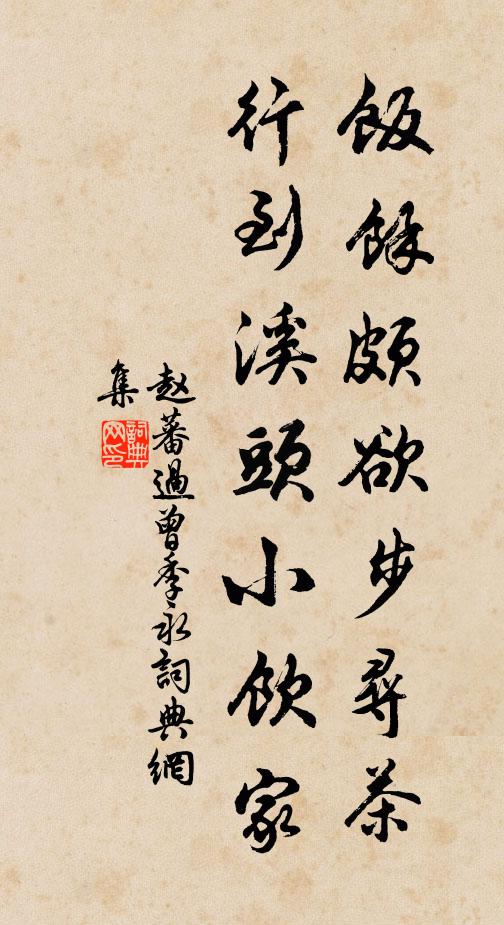 飯餘頗欲步尋茶
行到溪頭小飲家
赵蕃過曾季永詞典網
集
詞典
网印